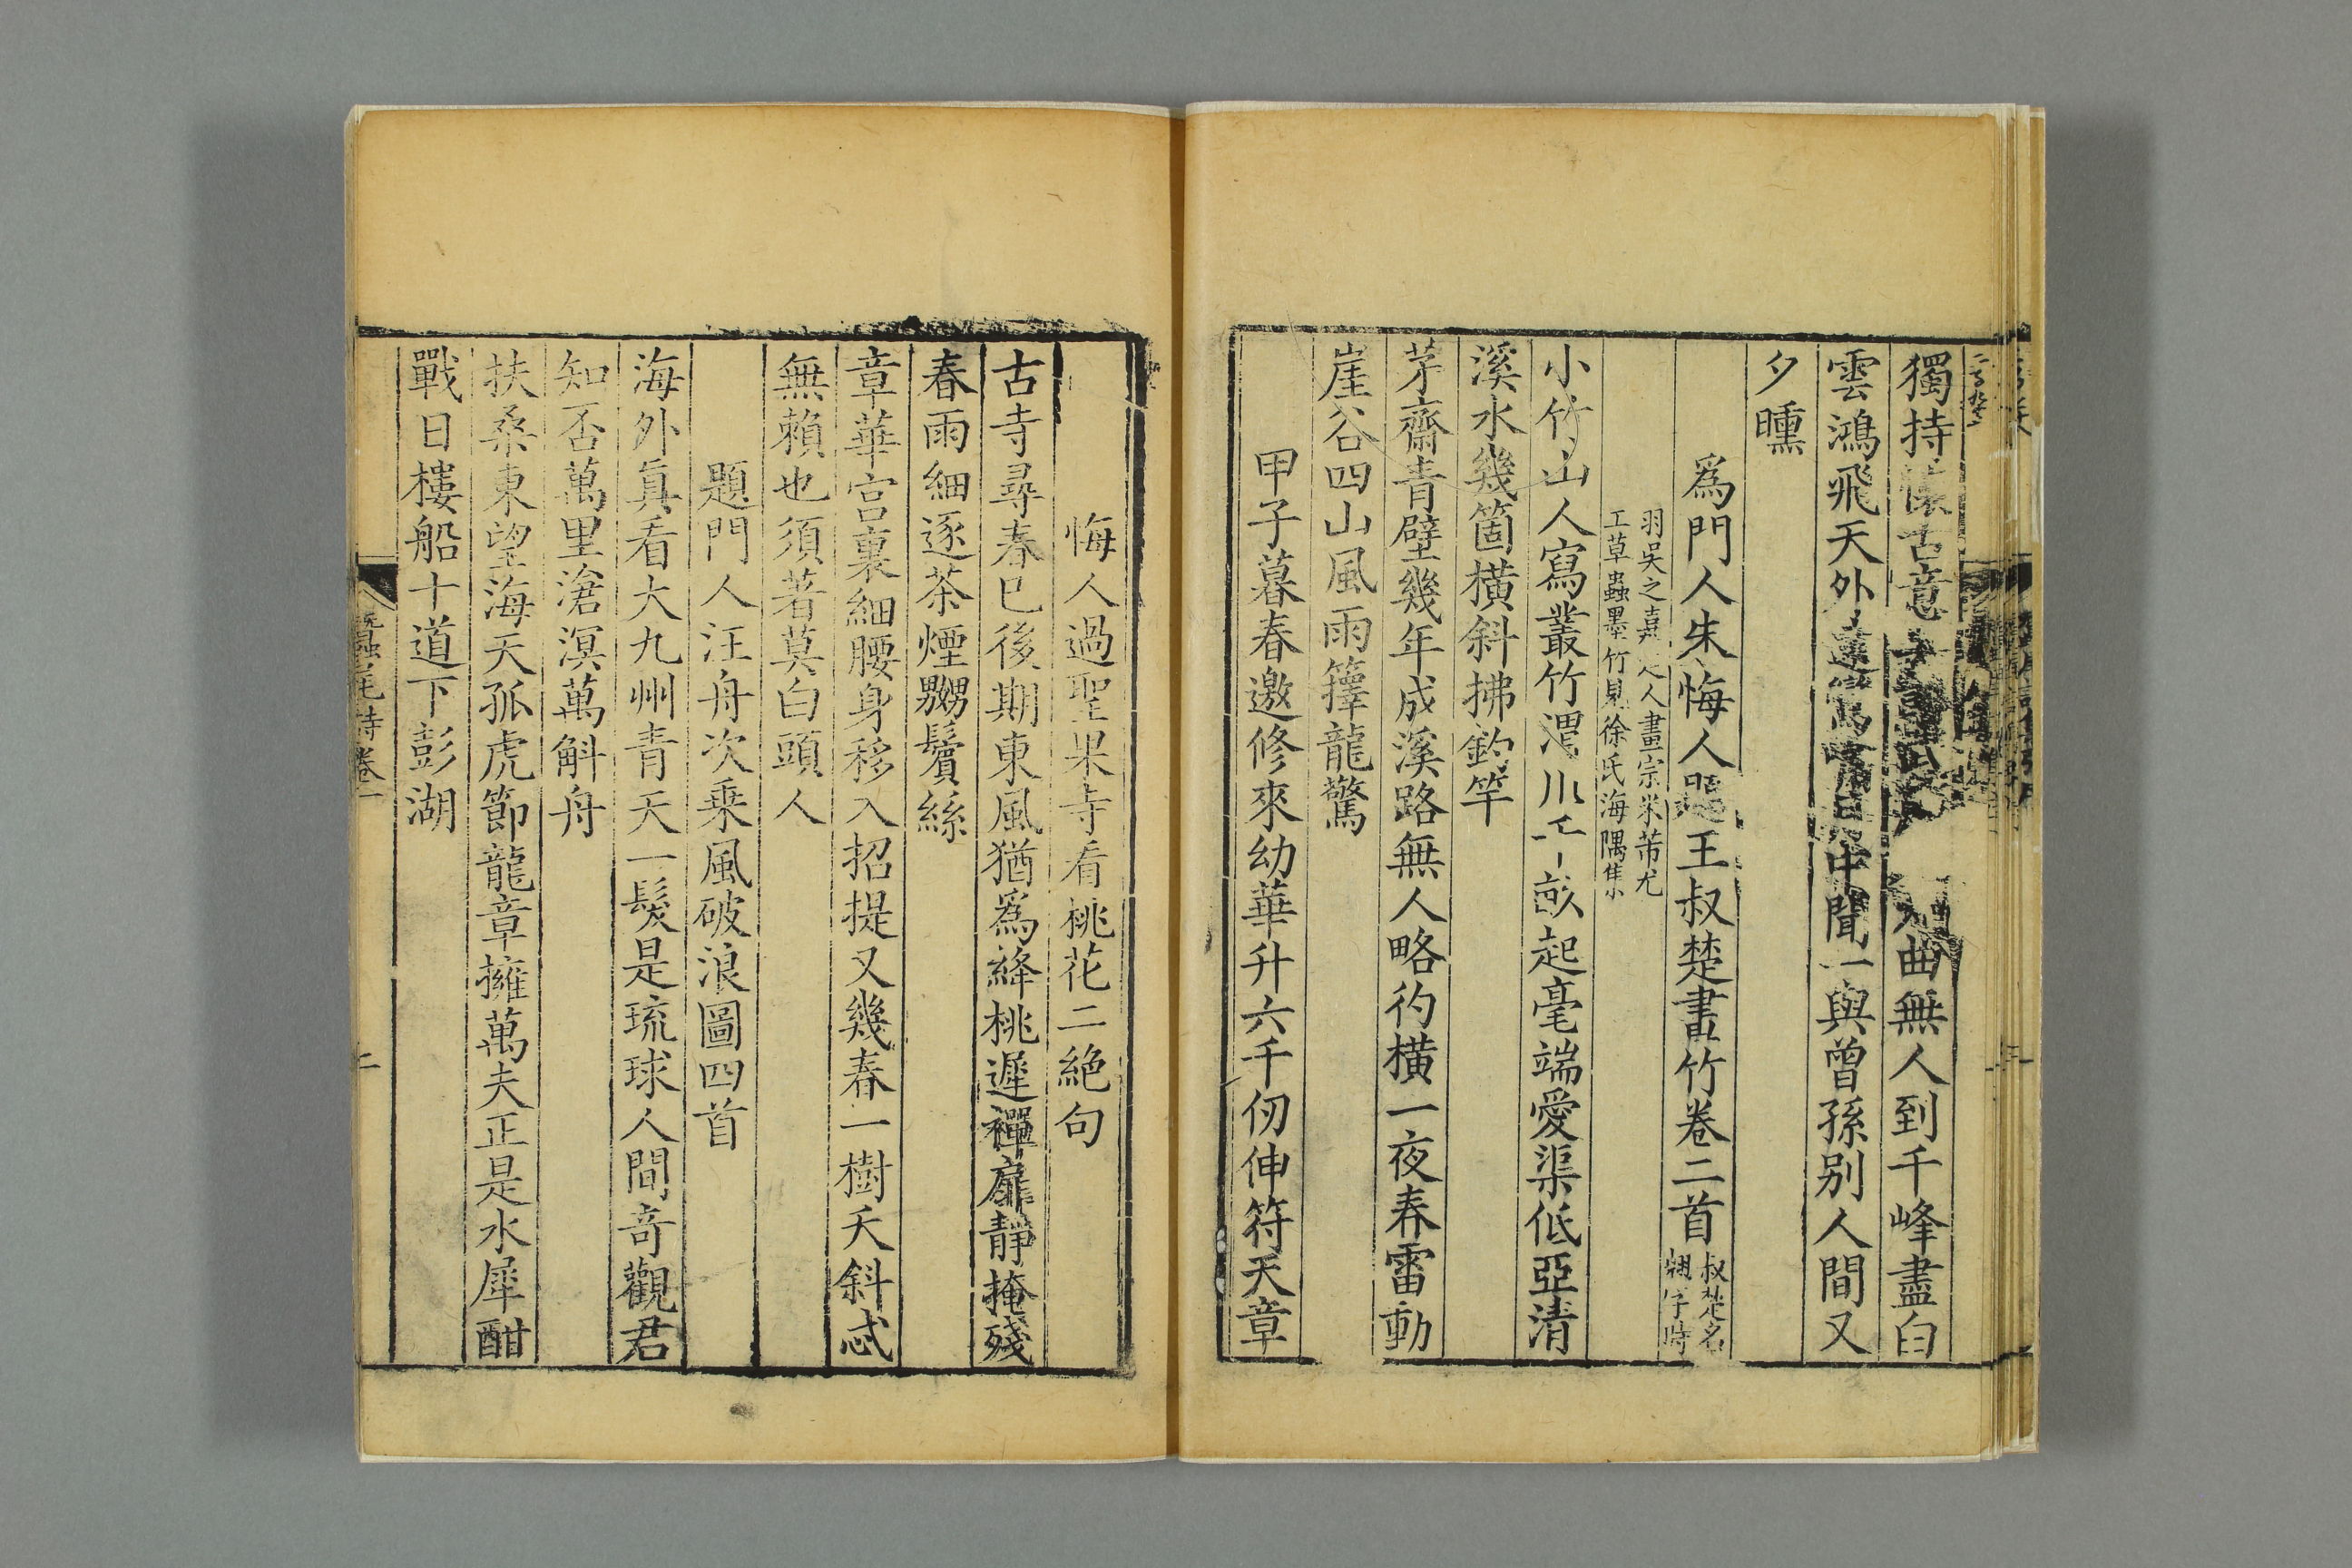 獨持懷古意
入曲無人到千峰盡白
雲鴻飛天外
中聞一與曾孫别人間又
夕曛
爲門人朱悔人題王叔楚畫竹卷二首
叔楚名
翹字時
羽吳之嘉定人畫宗米芾尤
工草蟲墨竹見徐氏海隅集小
小竹山人寫叢竹渭川千畝起毫端愛渠低亞清
溪水幾箇横斜拂釣竿
茅齋青壁幾年成溪路無人略彴横一夜春雷動
崖谷四山風雨籜龍驚
甲子暮春邀修來幼華升六千仞伸符天章
悔人過聖果寺看桃花二絶句
古寺尋春已後期東風猶爲絳桃遲禪扉靜掩殘
春雨細逐茶煙嬲鬢絲
章華宮裏細腰身移入招提又幾春一樹夭斜忒
無賴也須著莫白頭人
題門人汪舟次乘風破浪圖四首
海外真看大九州青天一髮是琉球人間奇觀君
知否萬里滄溟萬斛舟
扶桑東望海天孤虎節龍章擁萬夫正是水犀酣
戰日樓船十道下彭湖
蠶尾詩卷一